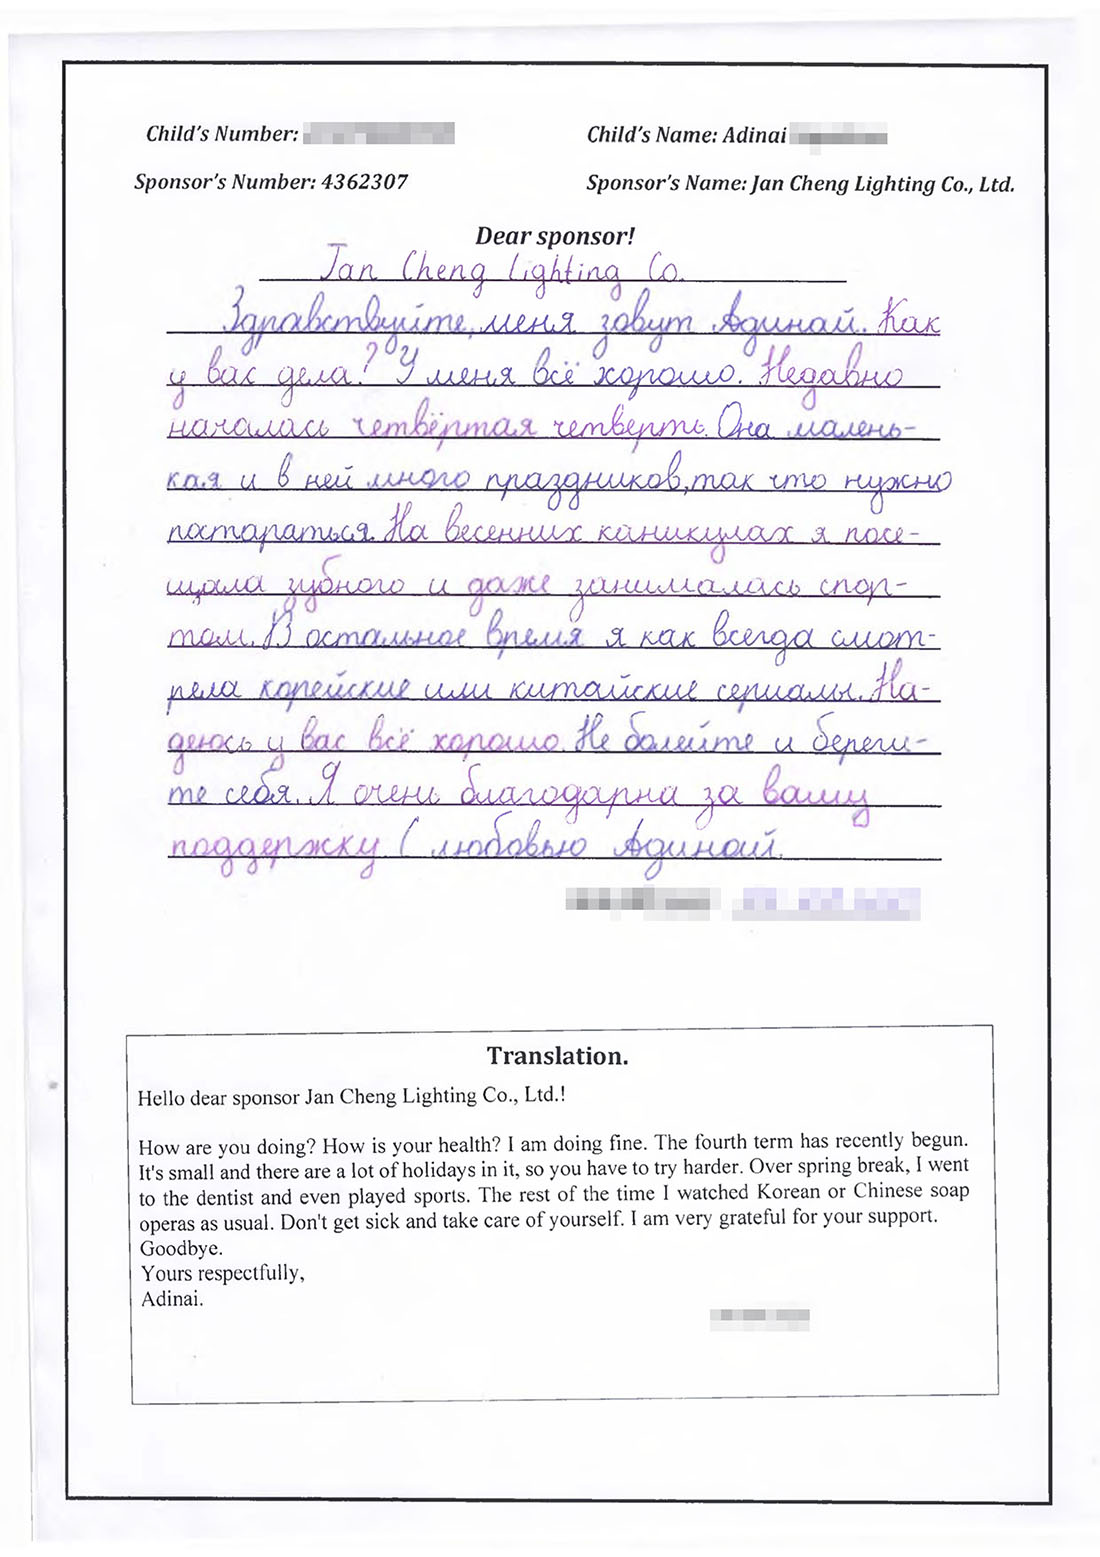 Child's Number:
Child's Name: Adinai
Sponsor's Number: 4362307
Sponsor's Name: Jan Cheng Lighting Co., Ltd.
Dear sponsor!
Jan Cheng Lighting Co.
Здравствуйте, меня зовут Адинай. Как
у вас дела? У меня всё хорошо. Недавно
началась четвёртая четверть. Она малень-
кая и в ней много праздников, так что нужно
постараться. На весенних каникулах я посе-
щала зубного и даже занималась спор-
том. В остальное время я как всегда смот-
рела корейские или китайские сериалы. На-
деюсь у вас всё хорошо. Не болейте и береги-
те себя. Я очень благодарна за вашу
поддержку С любовью Адинай.
Translation.
Hello dear sponsor Jan Cheng Lighting Co., Ltd.!
How are you doing? How is your health? I am doing fine. The fourth term has recently begun.
It's small and there are a lot of holidays in it, so you have to try harder. Over spring break, I went
to the dentist and even played sports. The rest of the time I watched Korean or Chinese soap
operas as usual. Don't get sick and take care of yourself. I am very grateful for your support.
Goodbye.
Yours respectfully,
Adinai.